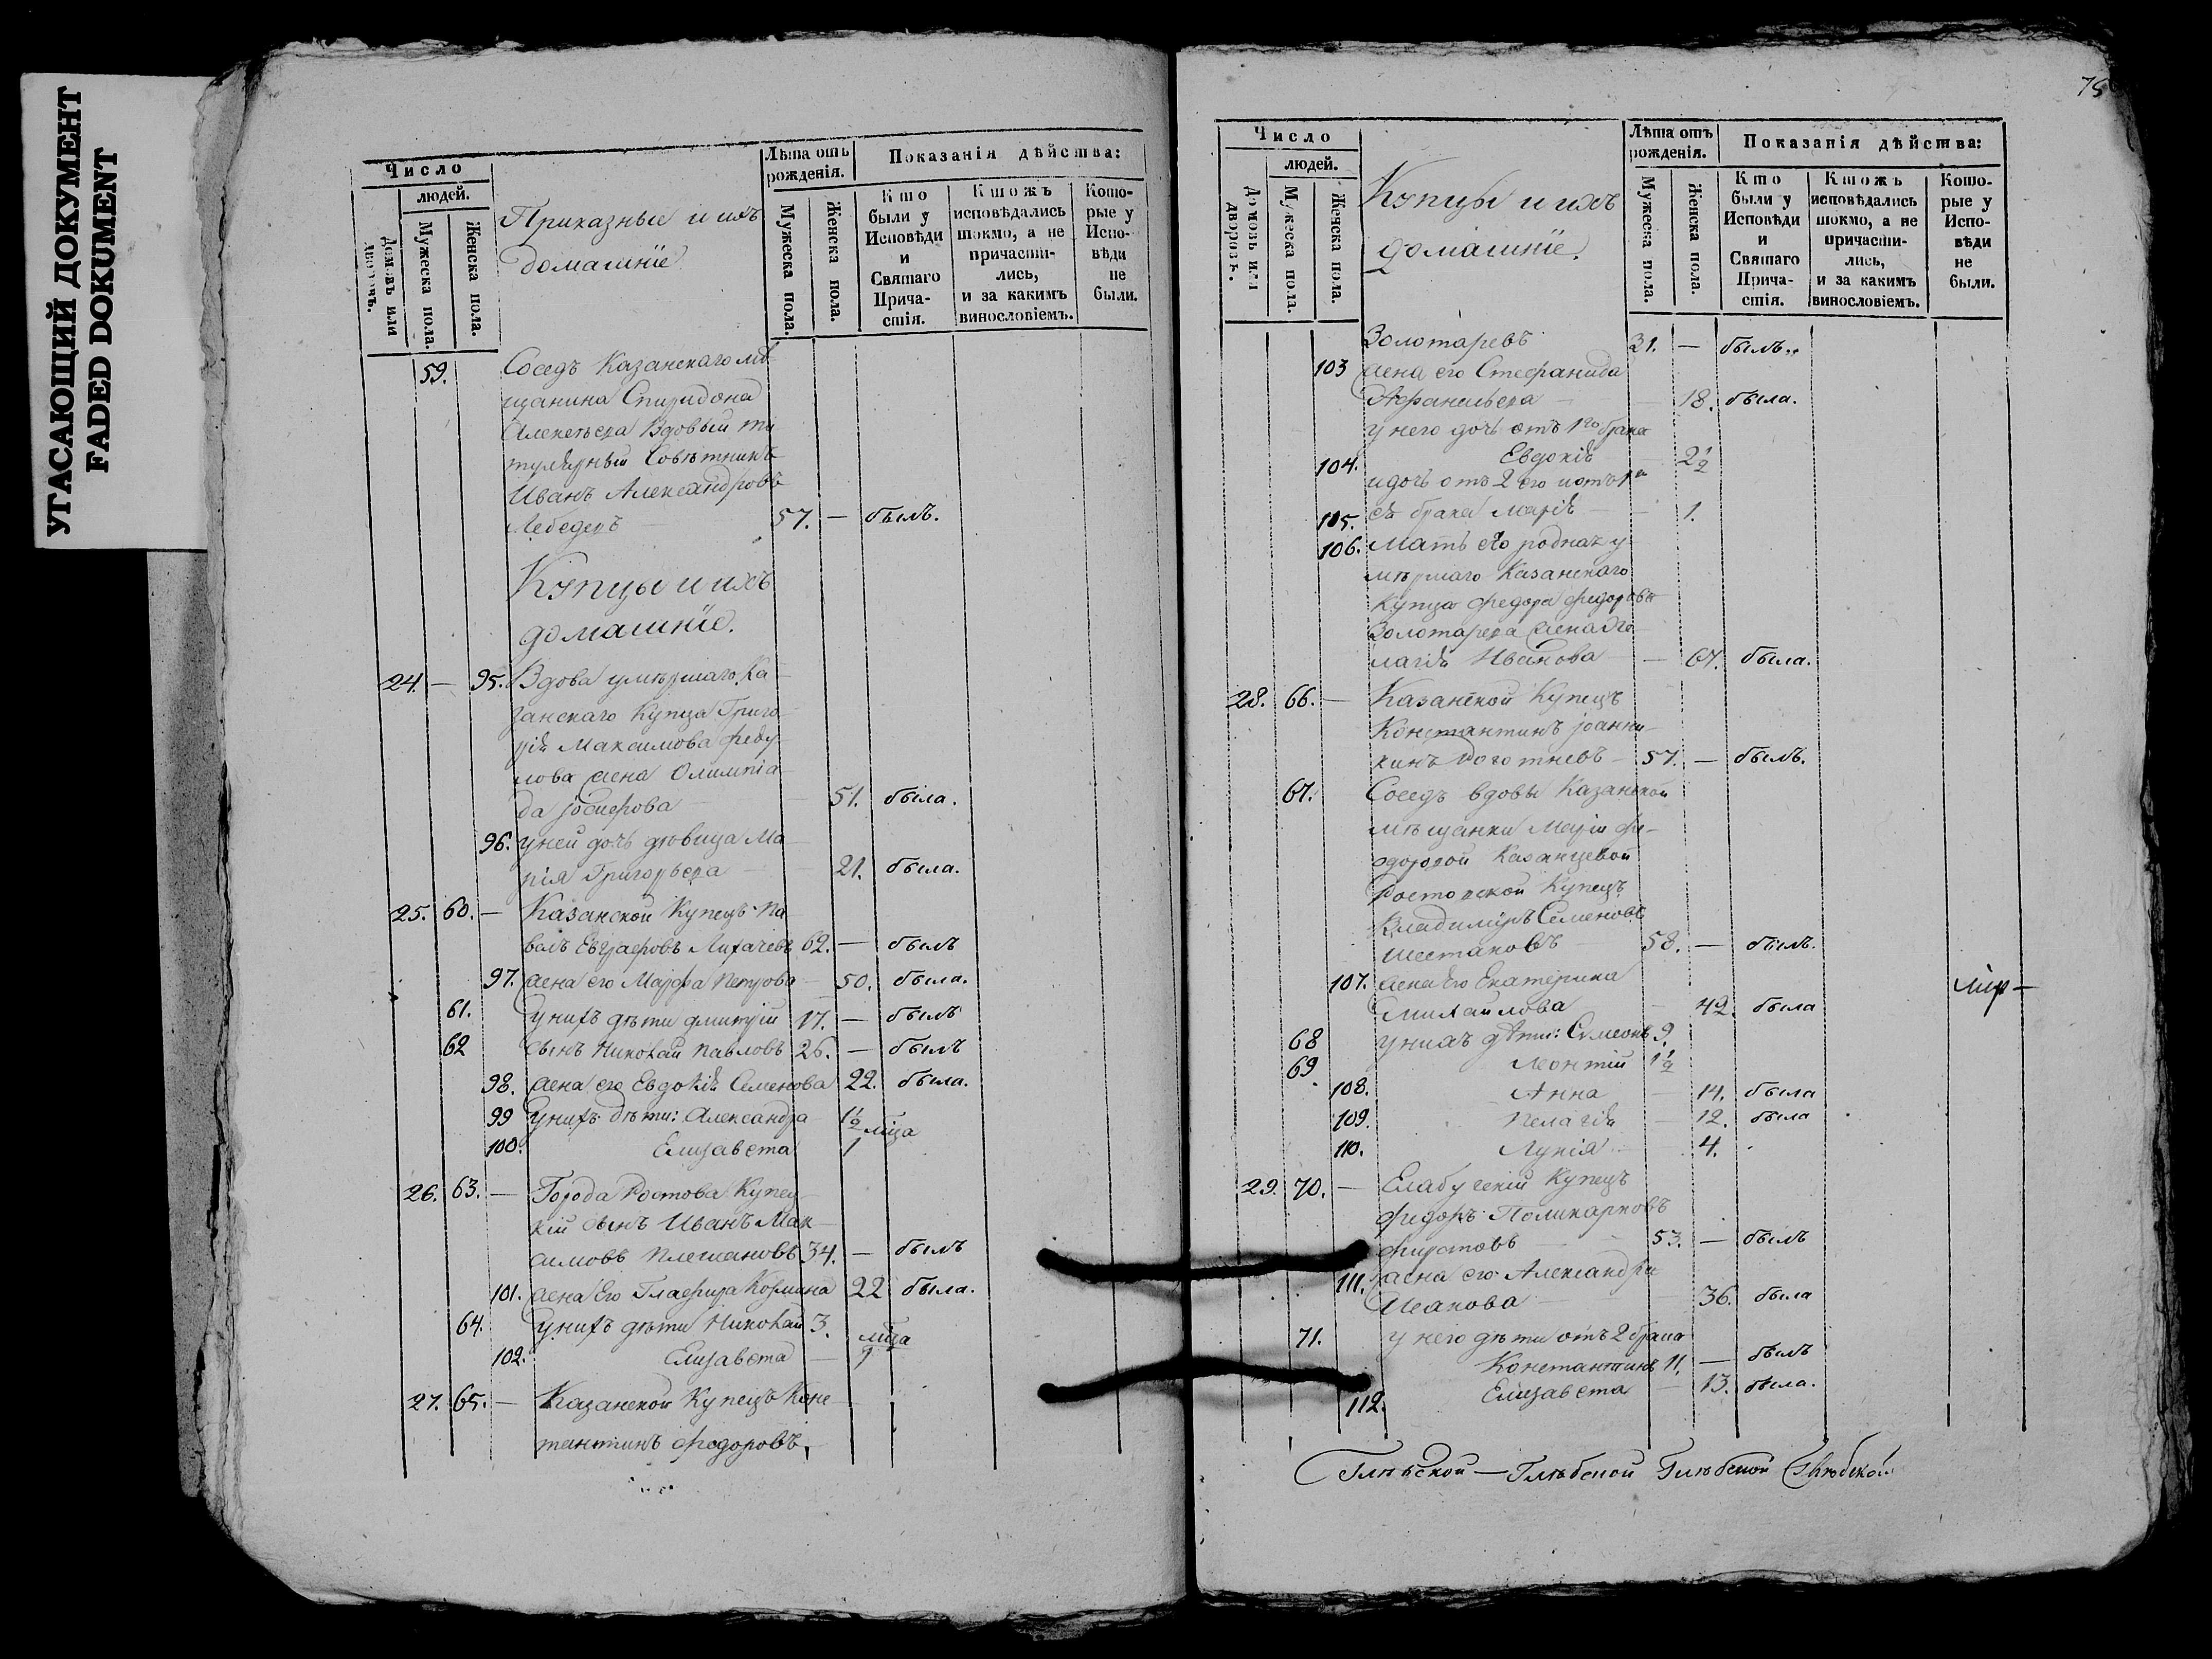 УГАСАЮЩИЙ ДОКУМЕНТ
FADED DOKUMENT
Число
людей.
Домовъ или дворовъ.
Мужеска пола.
Женска пола.
Приказные и ихъ
домашніе
Лѣта отъ
рожденія.
Мужеска пола.
Женска пола.
Показанія дѣйства:
Кто
были у
Исповѣди
и
Святаго
Прича-
стія.
Ктожъ
исповѣдались
токмо, а не
причасти-
лись,
и за какимъ
винословіемъ.
Кото-
рые у
Испо-
вѣди
не
были.
59. Соседъ Казанскаго мѣ
щанина Спиридона
Алексѣева Вдовый ти
тулярный Совѣтникъ
Иванъ Александровъ
Лебедевъ 57. — былъ.
Купцы и ихъ
домашніе.
24. — 95. Вдова умѣршаго Ка
занскаго Купца Григо
рія Максимова Феду
лова жена Олимпіа
да Іосифова 51. была.
96. у ней дочь дѣвица Ма
рія Григорьева 21. была.
25. 60. — Казанской Купецъ Па
велъ Евграфовъ Лихачевъ 62. — былъ
97. жена его Марфа Петрова 50. была.
61. у нихъ дѣти Дмитрій 17. — былъ
62 сынъ Николай Павловъ 26. — былъ
98. жена его Евдокія Семенова 22. была.
99 у нихъ дѣти: Александра 1½
100. Елизавета 1
26. 63. — Города Ростова Купец
кій сынъ Иванъ Мак
симовъ Плешановъ 34. — былъ
101. жена Его Глафира Козмина 22 была.
64. у нихъ дѣти Николай 3.
102. Елизавета — 1
27. 65. — Казанской Купецъ Конс
тантинъ Федоровъ
75
Число
людей.
Домовъ или дворовъ.
Мужеска пола.
Женска пола.
Купцы и ихъ
домашніе.
Лѣта отъ
рожденія.
Мужеска пола.
Женска пола.
Показанія дѣйства:
Кто
были у
Исповѣди
и
Святаго
Прича-
стія.
Ктожъ
исповѣдались
токмо, а не
причасти-
лись,
и за какимъ
винословіемъ.
Кото-
рые у
Испо-
вѣди
не
были.
Золотаревъ 31. — былъ.
103 жена его Стефанида
Афанасьева 18. была.
у него дочь отъ 1го брака
104. Евдокія 2½
и дочь отъ 2
105. брака Марія 1.
106. Мать его родная у
мѣршаго Казанскаго
Купца Федора Федорова
Золотарева жена
Иванова — 67. была.
28. 66. — Казанской Купецъ
Константинъ Іоанни
кинъ 57. — былъ.
67. Соседъ вдовы Казанской
мѣщанки Маріи Фе-
одоровой Казанцевой
Ростовской Купецъ
Владиміръ Семеновъ
Шестаковъ 58. — былъ.
107. жена Его Екатерина
Михайлова 42. была
68 у нихъ дѣти: Симеонъ 9.
69 Леонтій 1½
108. Анна 14. была
109. Пелагія 12. была
110. Лукія 4.
29. 70. — Елабугскій Купецъ
Федоръ Поликарповъ
Фирстовъ 53. — былъ
111. жена его Александра
Исакова 36. была
71. у него дѣти отъ 2 брака
Константинъ 11. — былъ
112. Елизавета 13. была.
Глѣбской Глѣбской